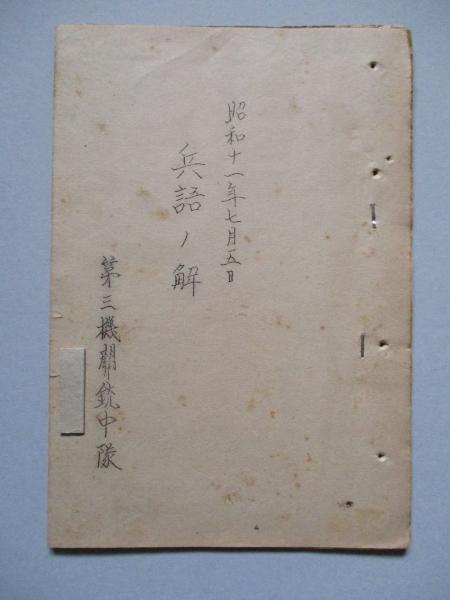 昭和十一年七月五日
兵語ノ解
第三機關銃中隊